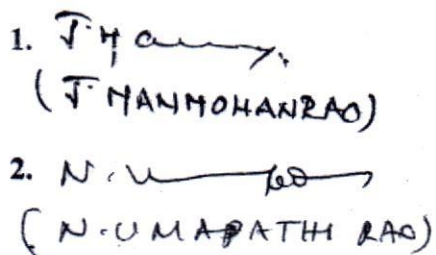 1.
(J MANMOHANRAO)
2. N.
(N.UMAPATHI RAO)